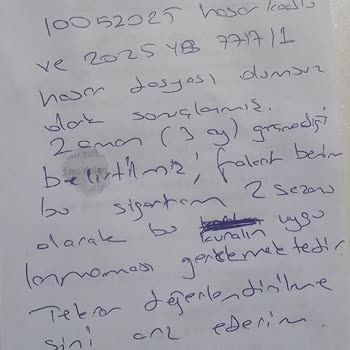 10052025 hasar kodlu
ve 2025 YB 7717/1
hasar dosyası olumsuz
olarak sonuçlanmış.
Zaman (3 ay) geçmediği
belirtilmiş, fakat benim
bu sigortam 2 sezon
olarak bu kuralın uygu
lanmaması gerekmektedir.
Tekrar değerlendirilme
sini arz ederim.